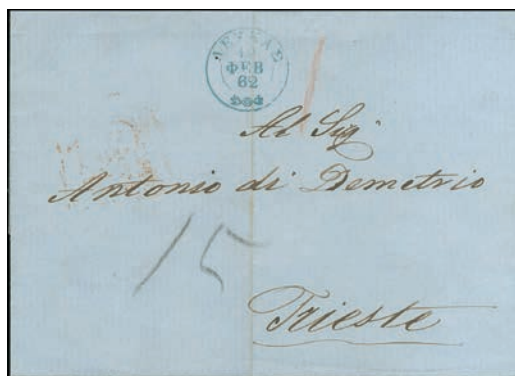 ΛΕΥΚΑΣ
ΦΕΒ
62
Al Sigʳ
Antonio di Demetrio
15
Trieste